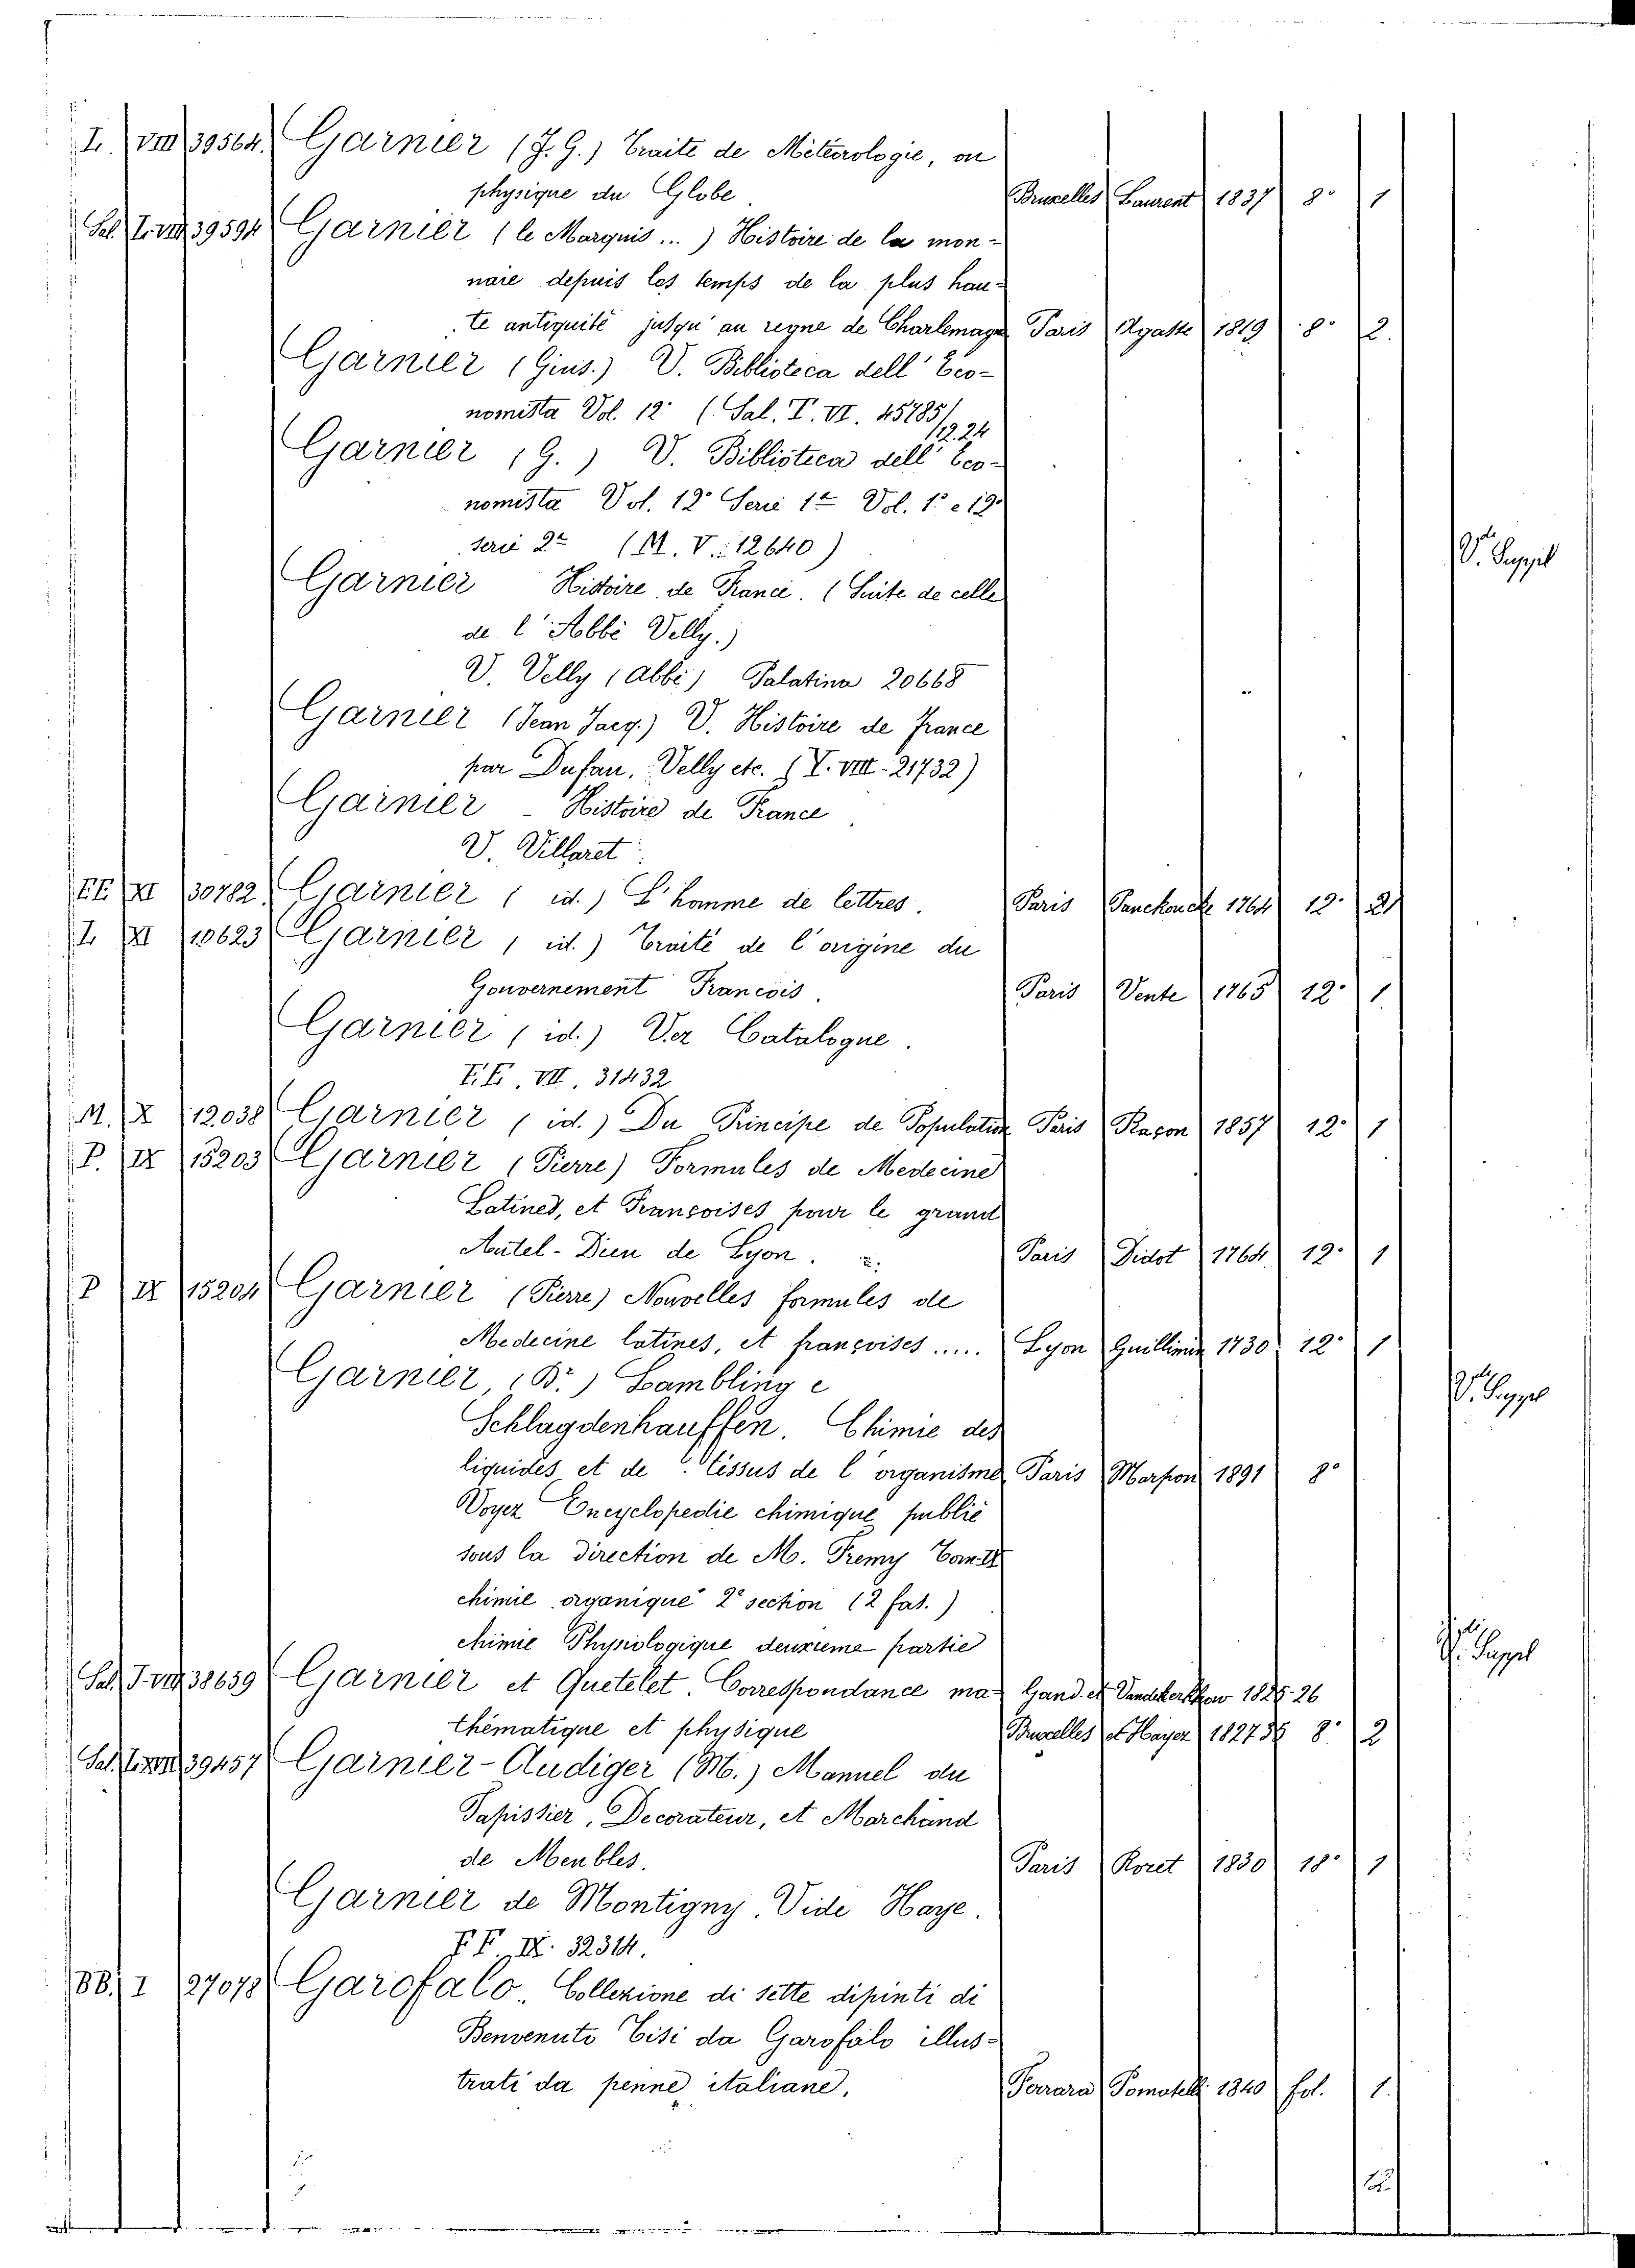 I. VIII 39564. Garnier (J. G.) Traité de Météorologie, ou
physique du Globe Bruxelles Laurent 1837 8° 1
Sal. I. VIII 39594 Garnier (le Marquis...) Histoire de la mon-
naie depuis les temps de la plus hau-
te antiquité jusqu'au regne de Charlemagne Paris Agasse 1819 8° 2.
Garnier (Gius.) V. Biblioteca dell' Eco-
nomista Vol. 12° (Sal. I. VI. 45785/
12.24
Garnier (G.) V. Biblioteca dell' Eco-
nomista Vol. 12° Serie 1ª Vol. 1° e 12°
serie 2ª (M. V. 12640) V. Suppl
Garnier Histoire de France. (Suite de celle
de l'Abbé Velly.)
V. Velly (Abbé) Palatina 20668
Garnier (Jean Jacq.) V. Histoire de france
par Dufau, Velly etc. (I. VIII. 21732)
Garnier - Histoire de France
V. Villaret
EE XI 30782. Garnier (id.) L'homme de lettres. Paris Panckoucke 1764 12° 2
I. XI 10623 Garnier (id.) Traité de l'origine du
Gouvernement Francois. Paris Vente 1765 12° 1
Garnier (id.) Ver Catalogue.
E. E. VII. 31432
M. X 12038 Garnier (id.) Du Principe de Population Paris Raçon 1857 12° 1
P. IX 15203 Garnier (Pierre) Formules de Medecine
Latines, et Françoises pour le grand
Autel-Dieu de Lyon. Paris Didot 1764 12° 1
P IX 15204 Garnier (Pierre) Nouvelles formules de
Medecine latines, et françoises..... Lyon Guillimin 1730 12° 1
Garnier, (Br) Lambling e V. Suppl
Schlagdenhauffen. Chimie des
liquides et de tissus de l'organisme Paris Marpon 1891 8°
Voyez Encyclopedie chimique publié
sous la direction de M. Fremy Tom. IX
chimie organique 2e section (2 fas.)
chimie Physiologique deuxieme partie V. Suppl
Sal. I. VIII 38659 Garnier et Quetelet. Correspondance ma- Gand. et Vandekerkhove 1825-26
thématique et physique Bruxelles et Hayez 1827 8° 2
Sal. I. VIII 39457 Garnier-Audiger (M.) Manuel du
Tapissier, Decorateur, et Marchand
de Meubles. Paris Roret 1830 18° 1
Garnier de Montigny. Vide Haye.
F F. IX. 32314.
BB. I 27078 Garofalo. Collezione di sette dipinti di
Benvenuto Tisi da Garofalo illus-
trati da penne italiane. Ferrara Pomatelli 1840 fol. 1.